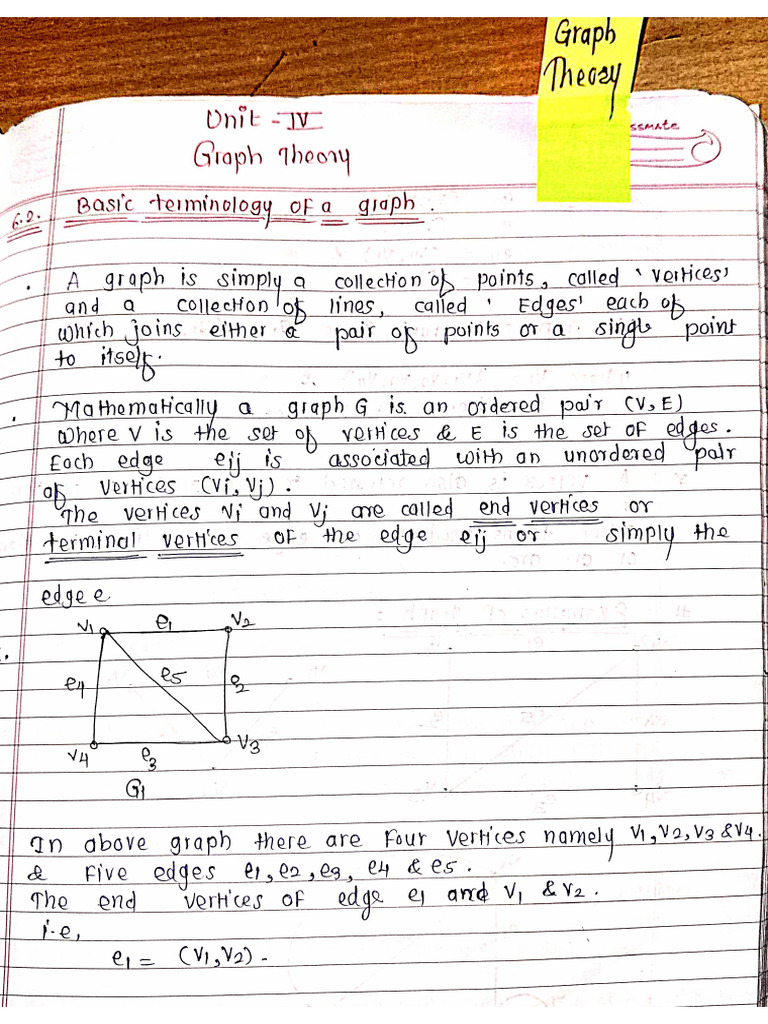 Graph
Theory
Unit - IV
ssmate
Graph Theory
6.2. Basic terminology of a graph.
. A graph is simply a collection of points, called 'vertices'
and a collection of lines, called 'Edges' each of
which joins either a pair of points or a single point
to itself.
. Mathematically a graph G is an ordered pair (V, E)
Where V is the set of vertices & E is the set of edges.
Each edge eij is associated with an unordered pair
of vertices (Vi, Vj).
The vertices Vi and Vj are called end vertices or
terminal vertices of the edge eij or simply the
edge e
V1 e1 V2
e4 e5 e2
V4 e3 V3
G1
In above graph there are Four vertices namely V1, V2, V3 & V4.
& Five edges e1, e2, e3, e4 & e5.
The end vertices of edge e1 and V1 & V2.
i.e,
e1 = (V1, V2).